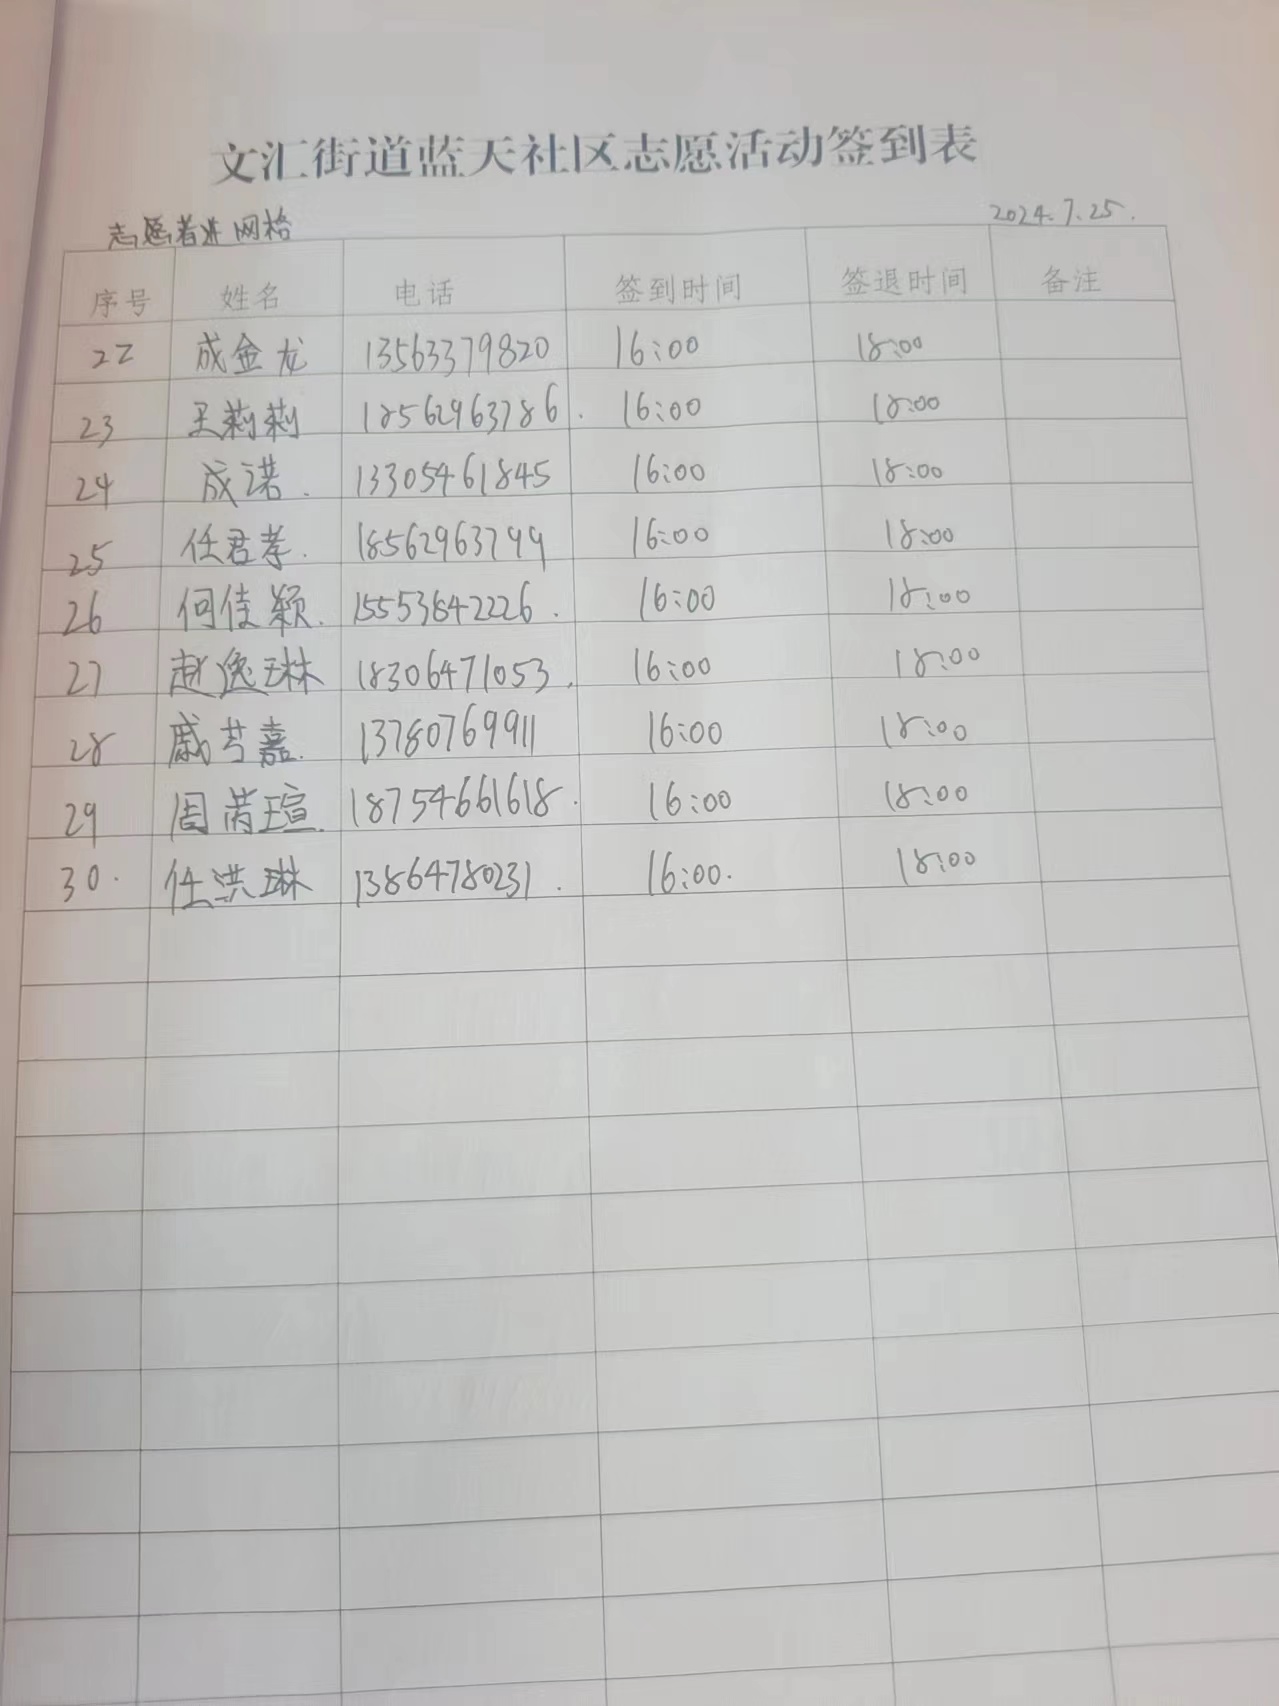 文汇街道蓝天社区志愿活动签到表
志愿者进网格 2024.7.25.
序号 姓名 电话 签到时间 签退时间 备注
22 成金龙 13563379820 16:00 18:00
23 王莉莉 18562963786. 16:00 18:00
24 成诺. 13305461845 16:00 18:00
25 任君孝. 18562963799 16:00 18:00
26 何佳颖. 15553642226. 16:00 18:00
27 赵逸琳 18306471053. 16:00 18:00
28 戚芩嘉. 13780769911 16:00 18:00
29 周芮瑄. 18754661618. 16:00 18:00
30. 任洪琳 13864780231. 16:00. 18:00